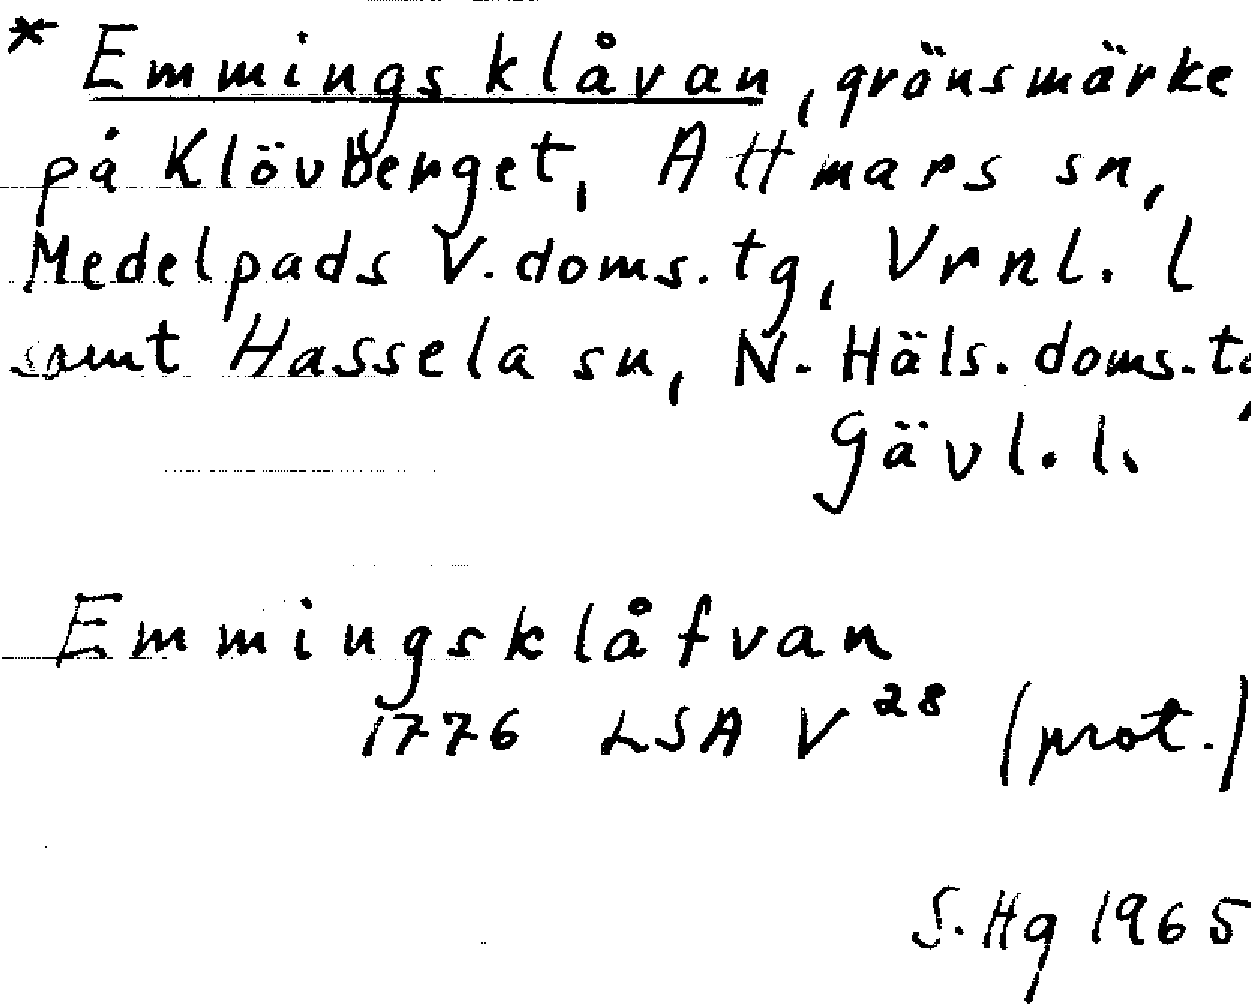 * Emmingsklåvan, gränsmärke
på Klövberget, Attmars sn,
Medelpads V. doms. tg, Vrnl. l
samt Hassela sn, N. Häls. doms. tg,
Gävl. l.
Emmingsklåfvan
1776 LSA V 28 (prot.)
S. Hg 1965